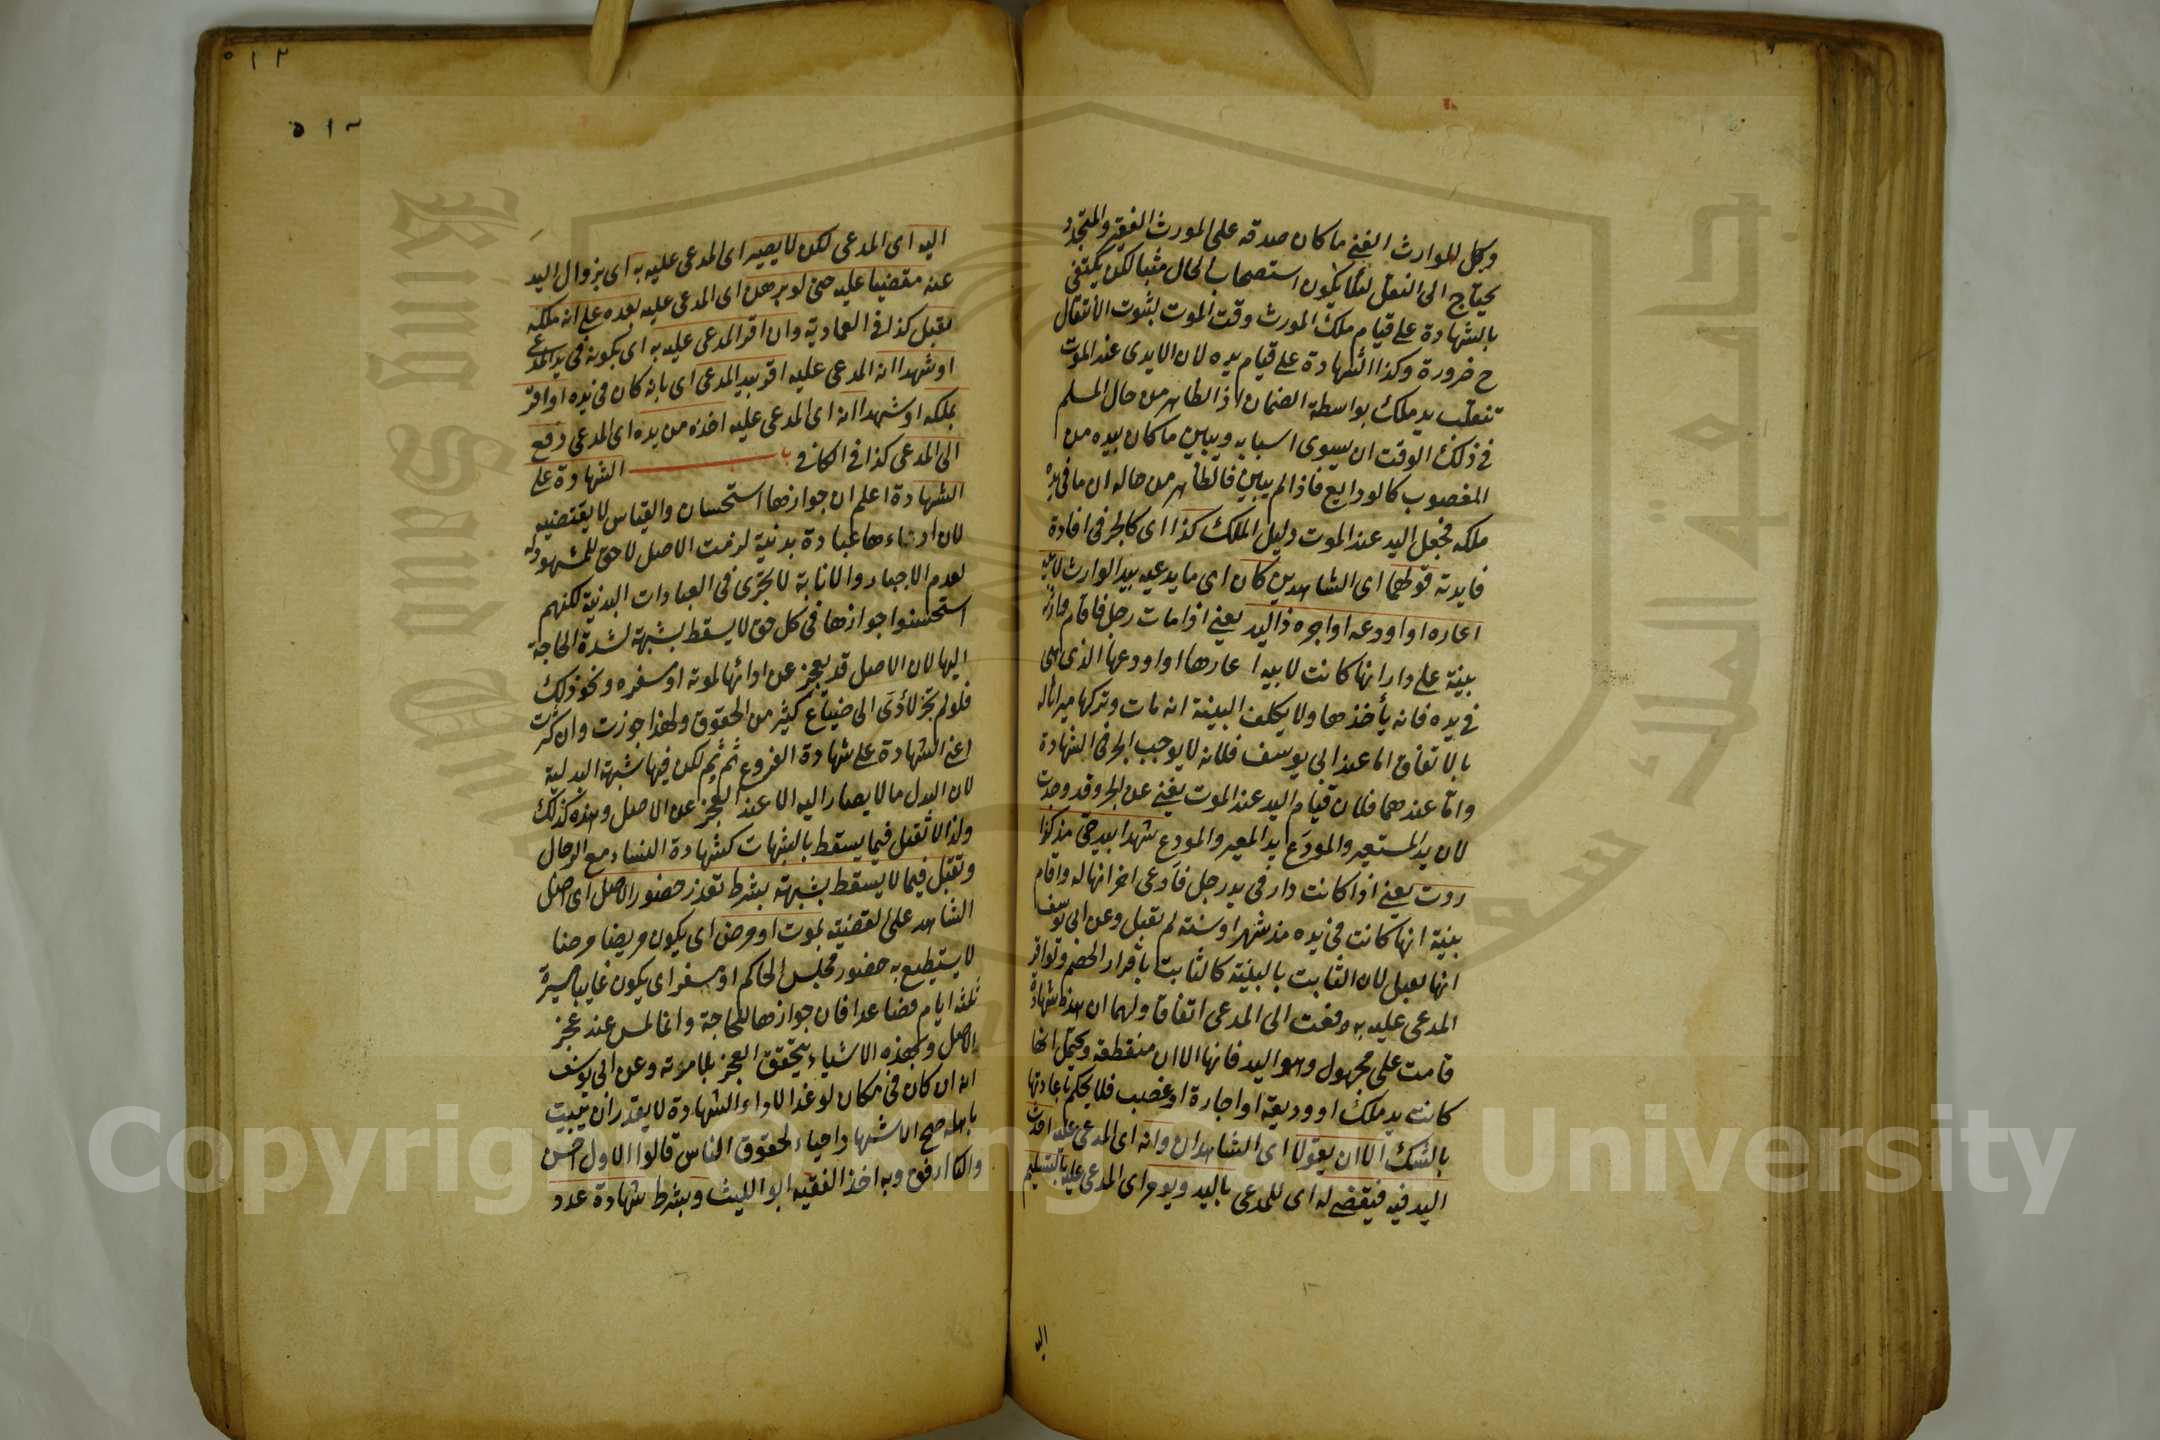 ويحل للوارث الغني ما كان صدقة على المورث الفقير والمتجدد
يحتاج الى النقل لئلا يكون استصحاب الحال مثبتا لكن يكتفى
بالشهادة على قيام ملك المورث وقت الموت لثبوت الانتقال
ح ضرورة وكذا الشهادة على قيام يده لان الايدى عند الموت
تنقلب يد ملك بواسطة الضمان اذ الظاهر من حال المسلم
فى ذلك الوقت ان يسوى اسبابه ويبين ما كان بيده من
المغصوب كالودايع فاذا لم يبين فالظاهر من حاله ان ما فى يده
ملكه فجعل اليد عند الموت دليل الملك كذا اى كالجر فى افادة
فايدته قولهما اى الشاهدين كان اى ما يدعيه بيد الوارث لابيه
اعاره او اودعه او اجره ذا اليد يعنى اذا مات رجل فاقام وارثه
بينة على دار انها كانت لابيه اعارها او اودعها الذى هى
فى يده فانه يأخذها ولا يكلف البينة انه مات وتركها ميراثا له
بالاتفاق اما عند ابى يوسف فلانه لا يوجب الجر فى الشهادة
واما عندهما فلان قيام اليد عند الموت يغنى عن الجر وقد وجدت
لان يد المستعير والمودَع يد المعير والمودِع شهدا بيد حى مذ كذا
ردت يعنى اذا كانت دار فى يد رجل فادعى اخر انها له واقام
بينة انها كانت فى يده مذ شهر او سنة لم تقبل وعن ابى يوسف
انها تقبل لان الثابت بالبينة كالثابت باقرار الخصم ولو اقر
المدعى عليه به دفعت الى المدعى اتفاقا ولهما ان هذه شهادة
قامت على مجهول وهو اليد فانها الان منقطعة ويحتمل انها
كانت يد ملك او وديعة او اجارة او غصب فلا يحكم باعادتها
بالشك الا ان يقولا اى الشاهدان وانه اى المدعى عليه احدث
اليد فيه فيقضى له اى للمدعى باليد ويومر اى المدعى عليه بالتسليم
اليه
٥١٢
٥١٢
اليه اى المدعى لكن لا يصير اى المدعى عليه به اى بزوال اليد
عنه مقضيا عليه حتى لو برهن اى المدعى عليه بعده على انه ملكه
يقبل كذا فى العمادية وان اقر المدعى عليه به اى بكونه فى يد المدعى
او شهدا انه المدعى عليه اقر بيد المدعى اى بانه كان فى يده او اقر
بملكه او شهدا انه اى المدعى عليه اخذه من يده اى المدعى دفع
الى المدعى كذا فى الكافى الشهادة على
الشهادة اعلم ان جوازها استحسان والقياس لا يقتضيه
لان اداءها عبادة بدنية لزمت الاصل لا حق للمشهود له
لعدم الاجبار والانابة لا تجزى فى العبادات البدنية لكنهم
استحسنوا جوازها فى كل حق لا يسقط بشبهة لشدة الحاجة
اليها لان الاصل قد يعجز عن ادائها لموته او سفره ونحو ذلك
فلو لم تجز لأدى الى ضياع كثير من الحقوق ولهذا جوزت وان كثرت
اعنى الشهادة على شهادة الفروع ثم ثم لكن فيها شبهة البدلية
لان البدل ما لا يصار اليه الا عند العجز عن الاصل وهذه كذلك
ولذا لا تقبل فيما يسقط بالشبهات كشهادة النساء مع الرجال
وتقبل فيما لا يسقط بشبهة بشرط تعذر حضور الاصل اى اصل
الشاهد على القضية بموت او مرض اى يكون مريضا مرضا
لا يستطيع به حضور مجلس الحاكم او سفر اى يكون غايبا مسيرة
ثلثة ايام فصاعدا فان جوازها للحاجة وانما تمس عند عجز
الاصل وبهذه الاشياء يتحقق العجز بلا مرية وعن ابى يوسف
انه ان كان فى مكان لو غدا لاداء الشهادة لا يقدر ان يبيت
باهله صح الاشهاد احياء لحقوق الناس قالوا الاول احسن
والثانى ارفق وبه اخذ الفقيه ابو الليث وبشرط شهادة عدد
Copyright © King Saud University
King Saud University
جامعة الملك سعود